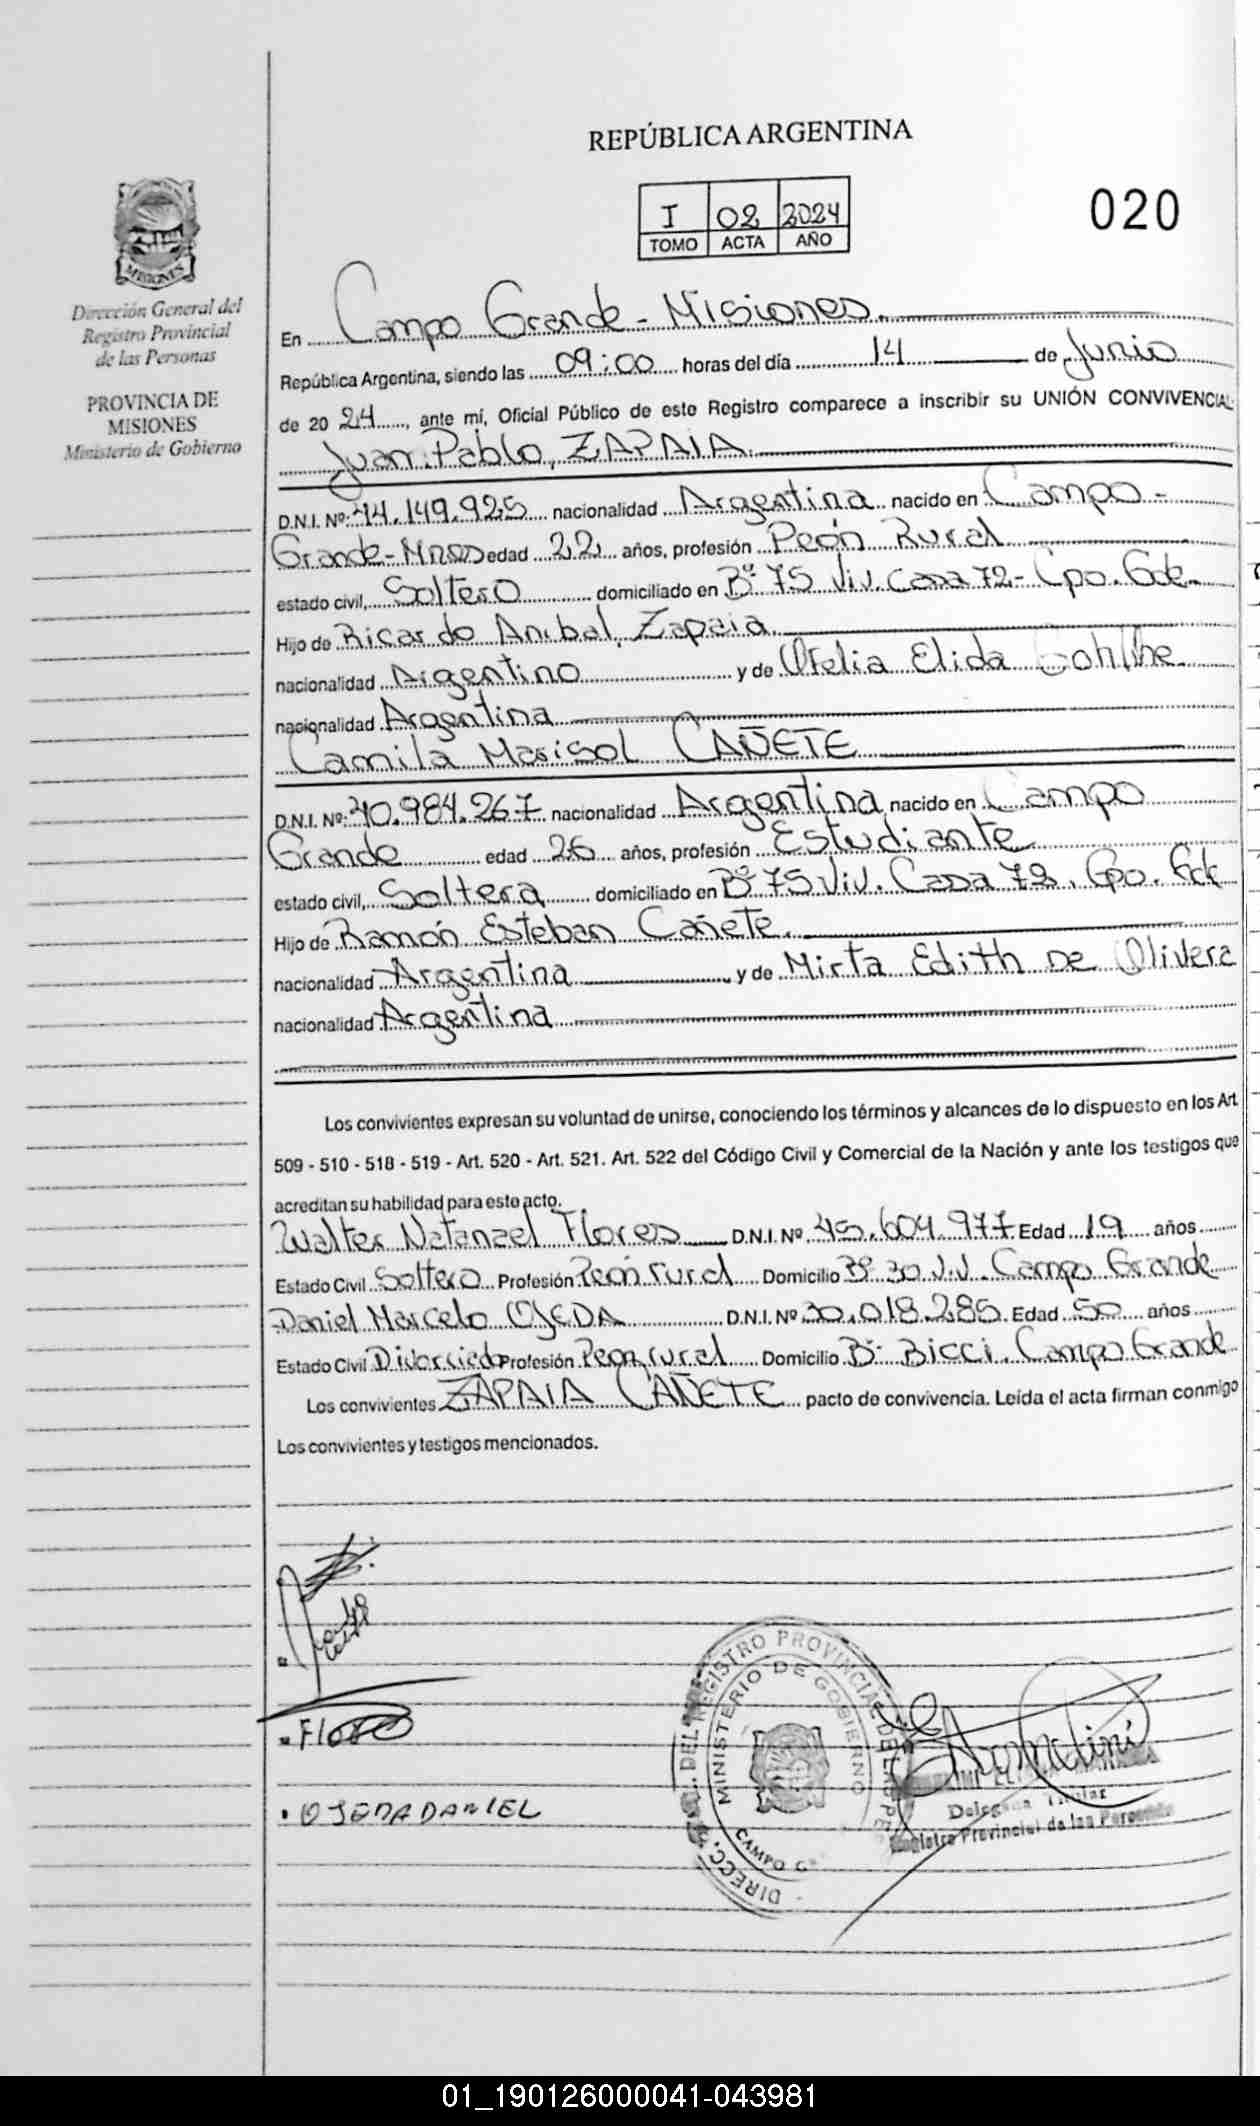 REPÚBLICA ARGENTINA
I 02 2024
TOMO ACTA AÑO
020
MISIONES
Dirección General del
Registro Provincial
de las Personas
PROVINCIA DE
MISIONES
Ministerio de Gobierno
En Campo Grande - Misiones
República Argentina, siendo las 09:00 horas del día 14 de Junio
de 20 24, ante mí, Oficial Público de este Registro comparece a inscribir su UNIÓN CONVIVENCIAL
Juan Pablo, ZAPAIA
D.N.I. Nº: 44.149.925 nacionalidad Argentina nacido en Campo -
Grande - Mnes edad 22 años, profesión Peón Rural
estado civil, Soltero domiciliado en Bº 75 Viv. Casa 72 - Cpo. Gde.
Hijo de Ricardo Anibal, Zapaia
nacionalidad Argentino y de Ofelia Elida
nacionalidad Argentina
Camila Marisol CAÑETE
D.N.I. Nº: 40.984.267 nacionalidad Argentina nacido en Campo
Grande edad 26 años, profesión Estudiante
estado civil, Soltera domiciliado en Bº 75 Viv. Casa 72, Cpo. Gde
Hijo de Ramón Esteban Cañete.
nacionalidad Argentina y de Mirta Edith De Olivera
nacionalidad Argentina
Los convivientes expresan su voluntad de unirse, conociendo los términos y alcances de lo dispuesto en los Art.
509 - 510 - 518 - 519 - Art. 520 - Art. 521. Art. 522 del Código Civil y Comercial de la Nación y ante los testigos que
acreditan su habilidad para este acto.
Walter Natanael Flores D.N.I. Nº 45.604.977 Edad 19 años
Estado Civil Soltero Profesión Peón rural Domicilio Bº 30 Viv. Campo Grande
Daniel Marcelo OJEDA D.N.I. Nº 30.018.285 Edad 50 años
Estado Civil Divorciado Profesión Peon rural Domicilio Bº Bicci. Campo Grande
Los convivientes ZAPAIA CAÑETE pacto de convivencia. Leída el acta firman conmigo
Los convivientes y testigos mencionados.
Flores
OJEDA DANIEL
DIRECC. DEL REGISTRO PROVINCIAL DE
MINISTERIO DE GOBIERNO
CAMPO
Titular
Registro Provincial de las Personas
01_190126000041-043981